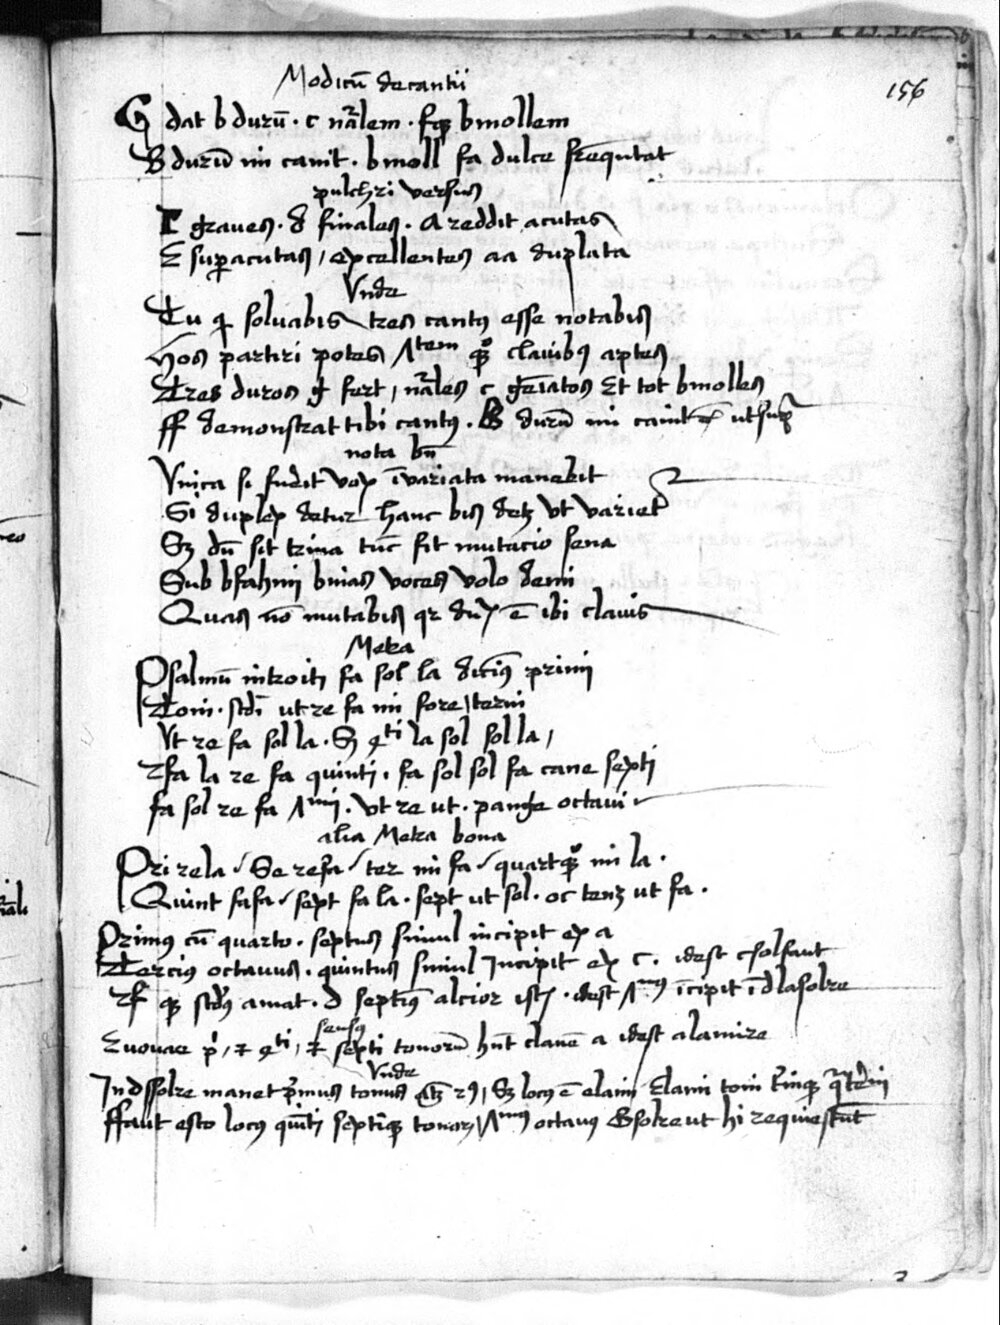 156
Modicũ decantũ
G dat b durũ · c nãlem · fqꝫ b mollem
B durũ mi canit · b moll fa dulce frequẽtat
pulchri versus
Γ graves · d finales · a reddit acutas
E suꝑacutas / excellentes aa duplata
Vnde
Tu qͥ solvabis tres cantꝰ esse notabis
Hos partiri potes Λtem qꝫ clavibꝰ aptes
Tres duros g fert / nãles c gẽiatos Et tot b molles
ff demonstrat tibi cantꝰ · B durũ mi canit ut supͣ
nota bñ
Vnica si fudit vox ĩvariata manebit
Si duplex detur hanc bis detꝫ vt varietͬ
Sꝫ dũ sit trina tũc fit mutacio sena
Sub bfahmi binas voces volo demi
Quas nõ mutabis qꝛ dũpꝉ ẽ ibi clavis
Metra
Psalmũ introitꝰ fa sol la dicimꝰ primi
Toni · scdi ut re fa mi fore / terni
Vt re fa sol la · Sꝫ qͬti la sol sol la /
fa la re fa quinti · fa sol sol fa cane sexti
fa sol re fa Λmi · vt re ut · pange octavi
alia Metra bona
Pri re la / Se re fa / ter mi fa / quartqꝫ mi la ·
Quint fa fa / sext fa la · sept ut sol · oc tenꝫ ut fa ·
Primꝰ cũ quarto · sextus simul incipit ex a
Tercius octavus · quintus simul Incipit ex c · idest csolfaut
F qꝫ scdꝰ amat · d septimꝰ alcior istis · idest Λmꝰ ĩcipit ĩ dlasolre
Euouae pͥ / ⁊ qͬti / ⁊ sexti tonorũ hñt clavẽ a idest alamire
Vnde
In dsolre manet pͥmus tonus atqꝫ 2ꝰ / Sꝫ locꝰ ẽ elami
ffaut esto locꝰ quĩti sextiqꝫ tonorꝫ / Λmꝰ octavꝰ Gsolreut hi requiescũt